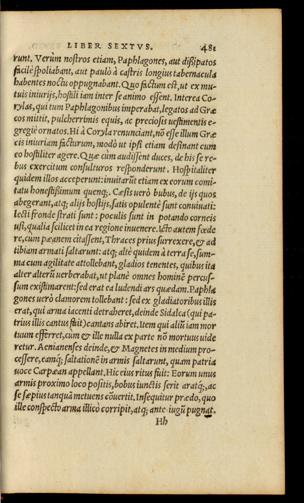 LIBER SEXTVS. 481
runt. Verùm nostros etiam, Paphlagones, aut dissipatos
facilè spoliabant, aut paulò à castris longius tabernacula
habentes noctu oppugnabant. Quo factum est, ut ex mu-
tuis iniurijs, hostili iam inter se animo essent. Interea Co-
rylas, qui tum Paphlagonibus imperabat, legatos ad Græ
cos mittit, pulcherrimis equis, ac preciosis uestimentis e-
gregiè ornatos. Hi à Coryla renunciant, nō esse illum Græ
cis iniuriam facturum, modò ut ipsi etiam desinant cum
eo hostiliter agere. Quæ cùm audissent duces, de his se re-
bus exercitum consulturos responderunt. Hospitaliter
quidem illos acceperunt: inuitarūt etiam ex eorum comi-
tatu honestissimum quenq;. Cæsis uerò bubus, de ijs quos
abegerant, atq; alijs hostijs, satis opulentè sunt conuiuati:
lecti fronde strati sunt: poculis sunt in potando corneis
usi, qualia scilicet in ea regione inuenere. Vcto autem fœde
re, cum pæanem citassent, Thraces prius surrexere, & ad
tibiam armati saltarunt: atq; altè quidem à terra se, sum-
ma cum agilitate attollebant, gladios tenentes, quibus ita
alter alterū uerberabat, ut planè omnes hominē percus-
sum existimarent: sed erat ea ludendi ars quædam. Paphla
gones uerò clamorem tollebant: sed ex gladiatoribus illis
erat, qui arma iacenti detraheret, deinde Sidalca (qui pa-
trius illis cantus fuit) cantans abiret. Item qui aliū iam mor
tuum efferret, cùm & ille nulla ex parte nō mortuus uide
retur. Aenianenses deinde, & Magnetes in medium pro-
cessere, eamq; saltationē in armis saltarunt, quam patria
uoce Carpæan appellant. Hic eius ritus fuit: Eorum unus
armis proximo loco positis, bobus iunctis serit aratq;, ac
se sæpius tanquā metuens cōuertit. Insequitur prædo, quo
ille conspecto arma illicò corripit, atq; ante iugū pugnat.
Hh